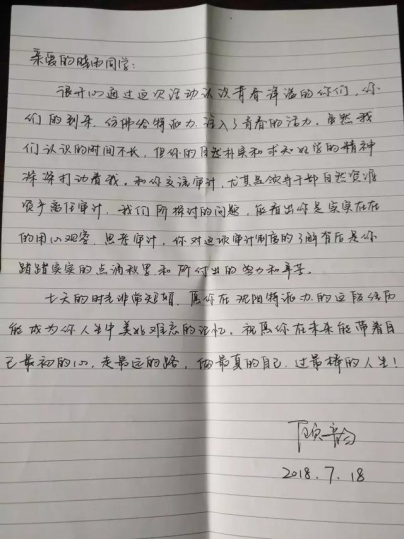 亲爱的晴雨同学：
很开心通过这次活动认识青春洋溢的你们，你
们的到来，仿佛给特派办注入了青春的活力，虽然我
们认识的时间不长，但你的自然朴实和求知好学的精神
深深打动着我，和你交流审计，尤其是领导干部自然资源
资产离任审计，我们所探讨的问题，能看出你是实实在在
的用心观察、思考审计，你对这项审计制度的了解背后是你
踏踏实实的点滴积累和所付出的努力和辛苦。
七天的时光非常短暂，愿你在沈阳特派办的这段经历
能成为你人生中美好难忘的记忆，祝愿你在未来能带着自
己最初的心，走最远的路，做最真的自己，过最棒的人生！
2018.7.18